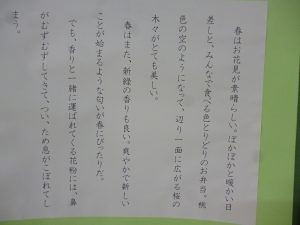 春はお花見が素晴らしい。ぽかぽかと暖かい日
差しと、みんなで食べる色とりどりのお弁当。桃
色の空のようになって、辺り一面に広がる桜の
木々がとても美しい。
春はまた、新緑の香りも良い。爽やかで新しい
ことが始まるような匂いが春にぴったりだ。
でも、香りと一緒に運ばれてくる花粉には、鼻
がむずむずしてきて、つい、ため息がこぼれてし
まう。